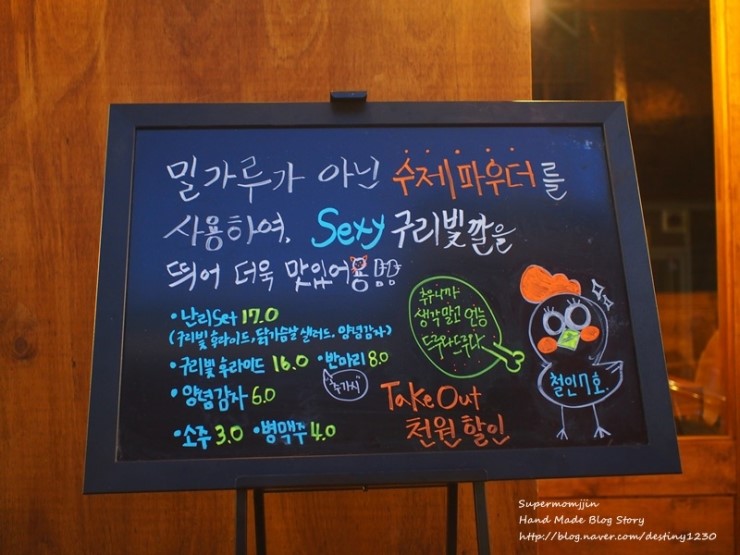 밀가루가 아닌 수제파우더를
사용하여, Sexy 구리빛깔을
띄어 더욱 맛있어용
•난리Set 17.0
(구리빛 후라이드, 닭가슴살 샐러드, 양념감자)
•구리빛 후라이드 16.0 •반마리 8.0
추가시
•양념감자 6.0
•소주 3.0 •병맥주 4.0
추우니까
생각말고 언능
Take Out
천원할인
철인7호.
Supermomjjin
Hand Made Blog Story
http://blog.naver.com/destiny1230